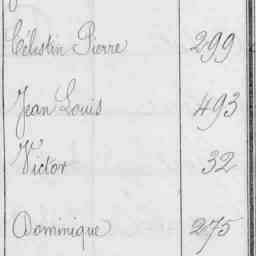 Célestin Pierre 299
Jean Louis 493
Victor 32
Dominique 275